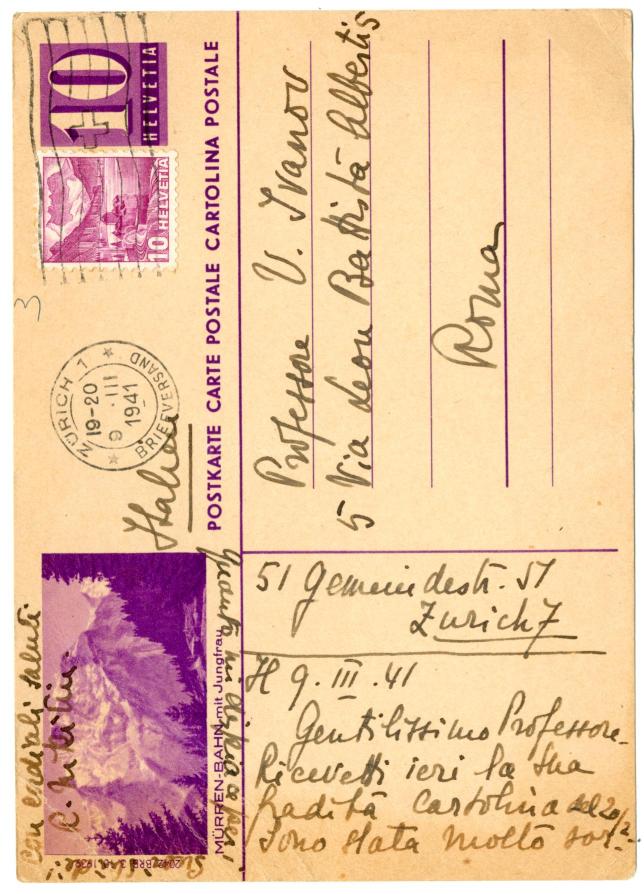 10
HELVETIA
10 HELVETIA
3
ZÜRICH 1
19-20
9.III
1941
BRIEFVERSAND
POSTKARTE CARTE POSTALE CARTOLINA POSTALE
Italien
Professore V. Ivanov
5 Via Leon Battista Alberti 5
Roma
MÜRREN-BAHN mit Jungfrau
51 Gemeindestr. 51
Zürich 7
Il 9. III. 41
Gentilissimo Professore.
Ricevetti ieri la Sua
gradita cartolina del 20/2.
Sono stata molto sor-
Quanto mi dispiace per
Con cordiali saluti